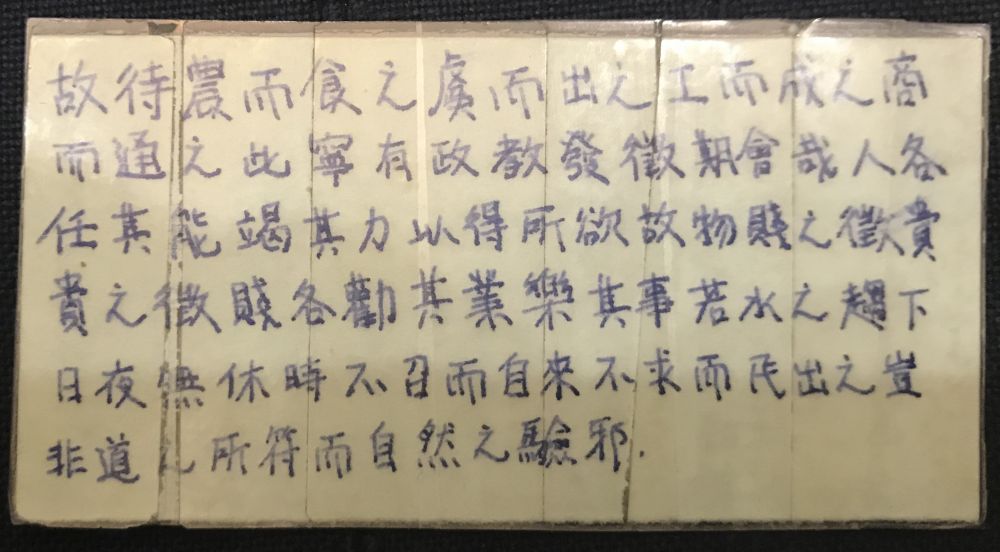 故待農而食之虞而出之工而成之商
而通之此寧有政教發徵期會哉人各
任其能竭其力以得所欲故物賤之徵貴
貴之徵賤各勸其業樂其事若水之趨下
日夜無休時不召而自來不求而民出之豈
非道之所符而自然之驗邪.